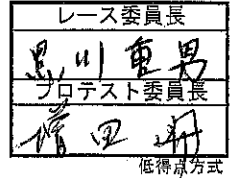 レース委員長
黒川重男
プロテスト委員長
増田開
低得点方式